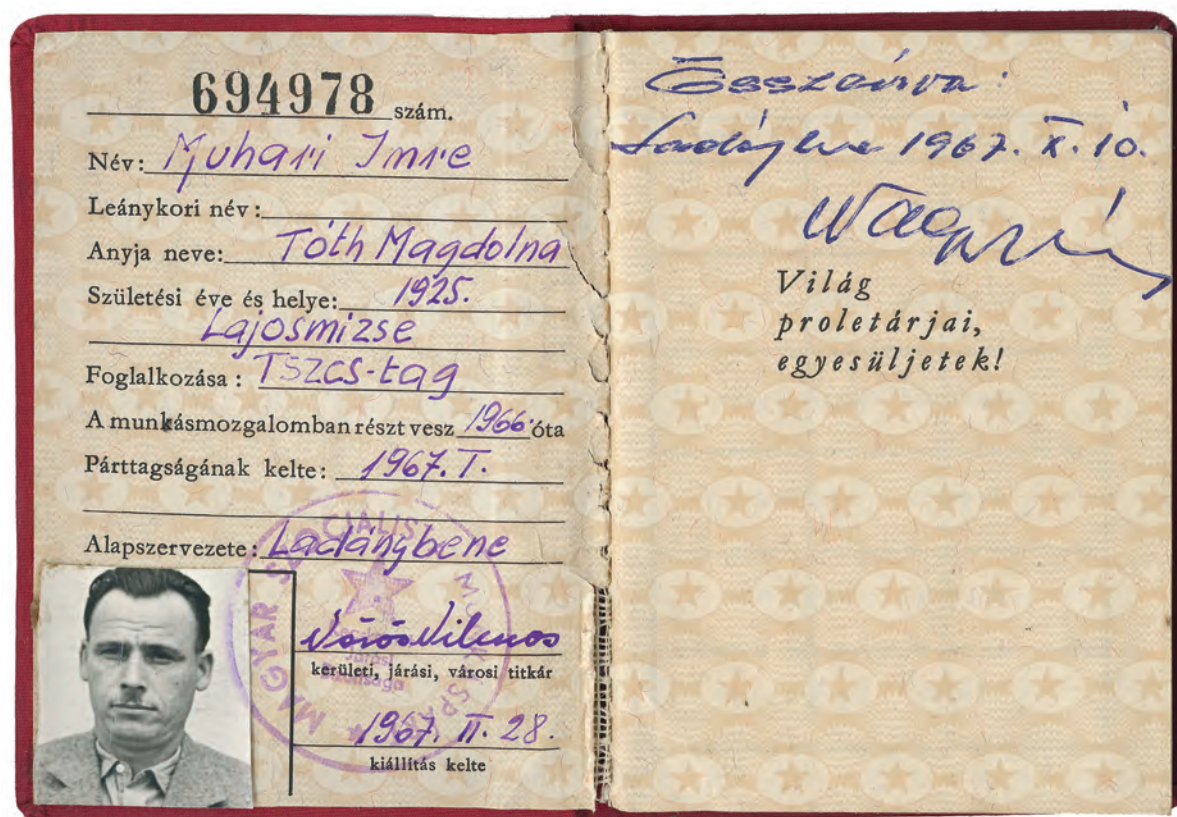 694978 szám.
Név: Muhari Imre
Leánykori név:
Anyja neve: Tóth Magdolna
Születési éve és helye: 1925.
Lajosmizse
Foglalkozása: TSZCS-tag
A munkásmozgalomban részt vesz 1966 óta
Párttagságának kelte: 1967. I.
Alapszervezete: Ladánybene
MAGYAR SZOCIALISTA MUNKÁSPÁRT
Vörös Vilmos
kerületi, járási, városi titkár
1967. II. 28.
kiállítás kelte
Összeírva:
Ladánybene 1967. X. 10.
Világ
proletárjai,
egyesüljetek!